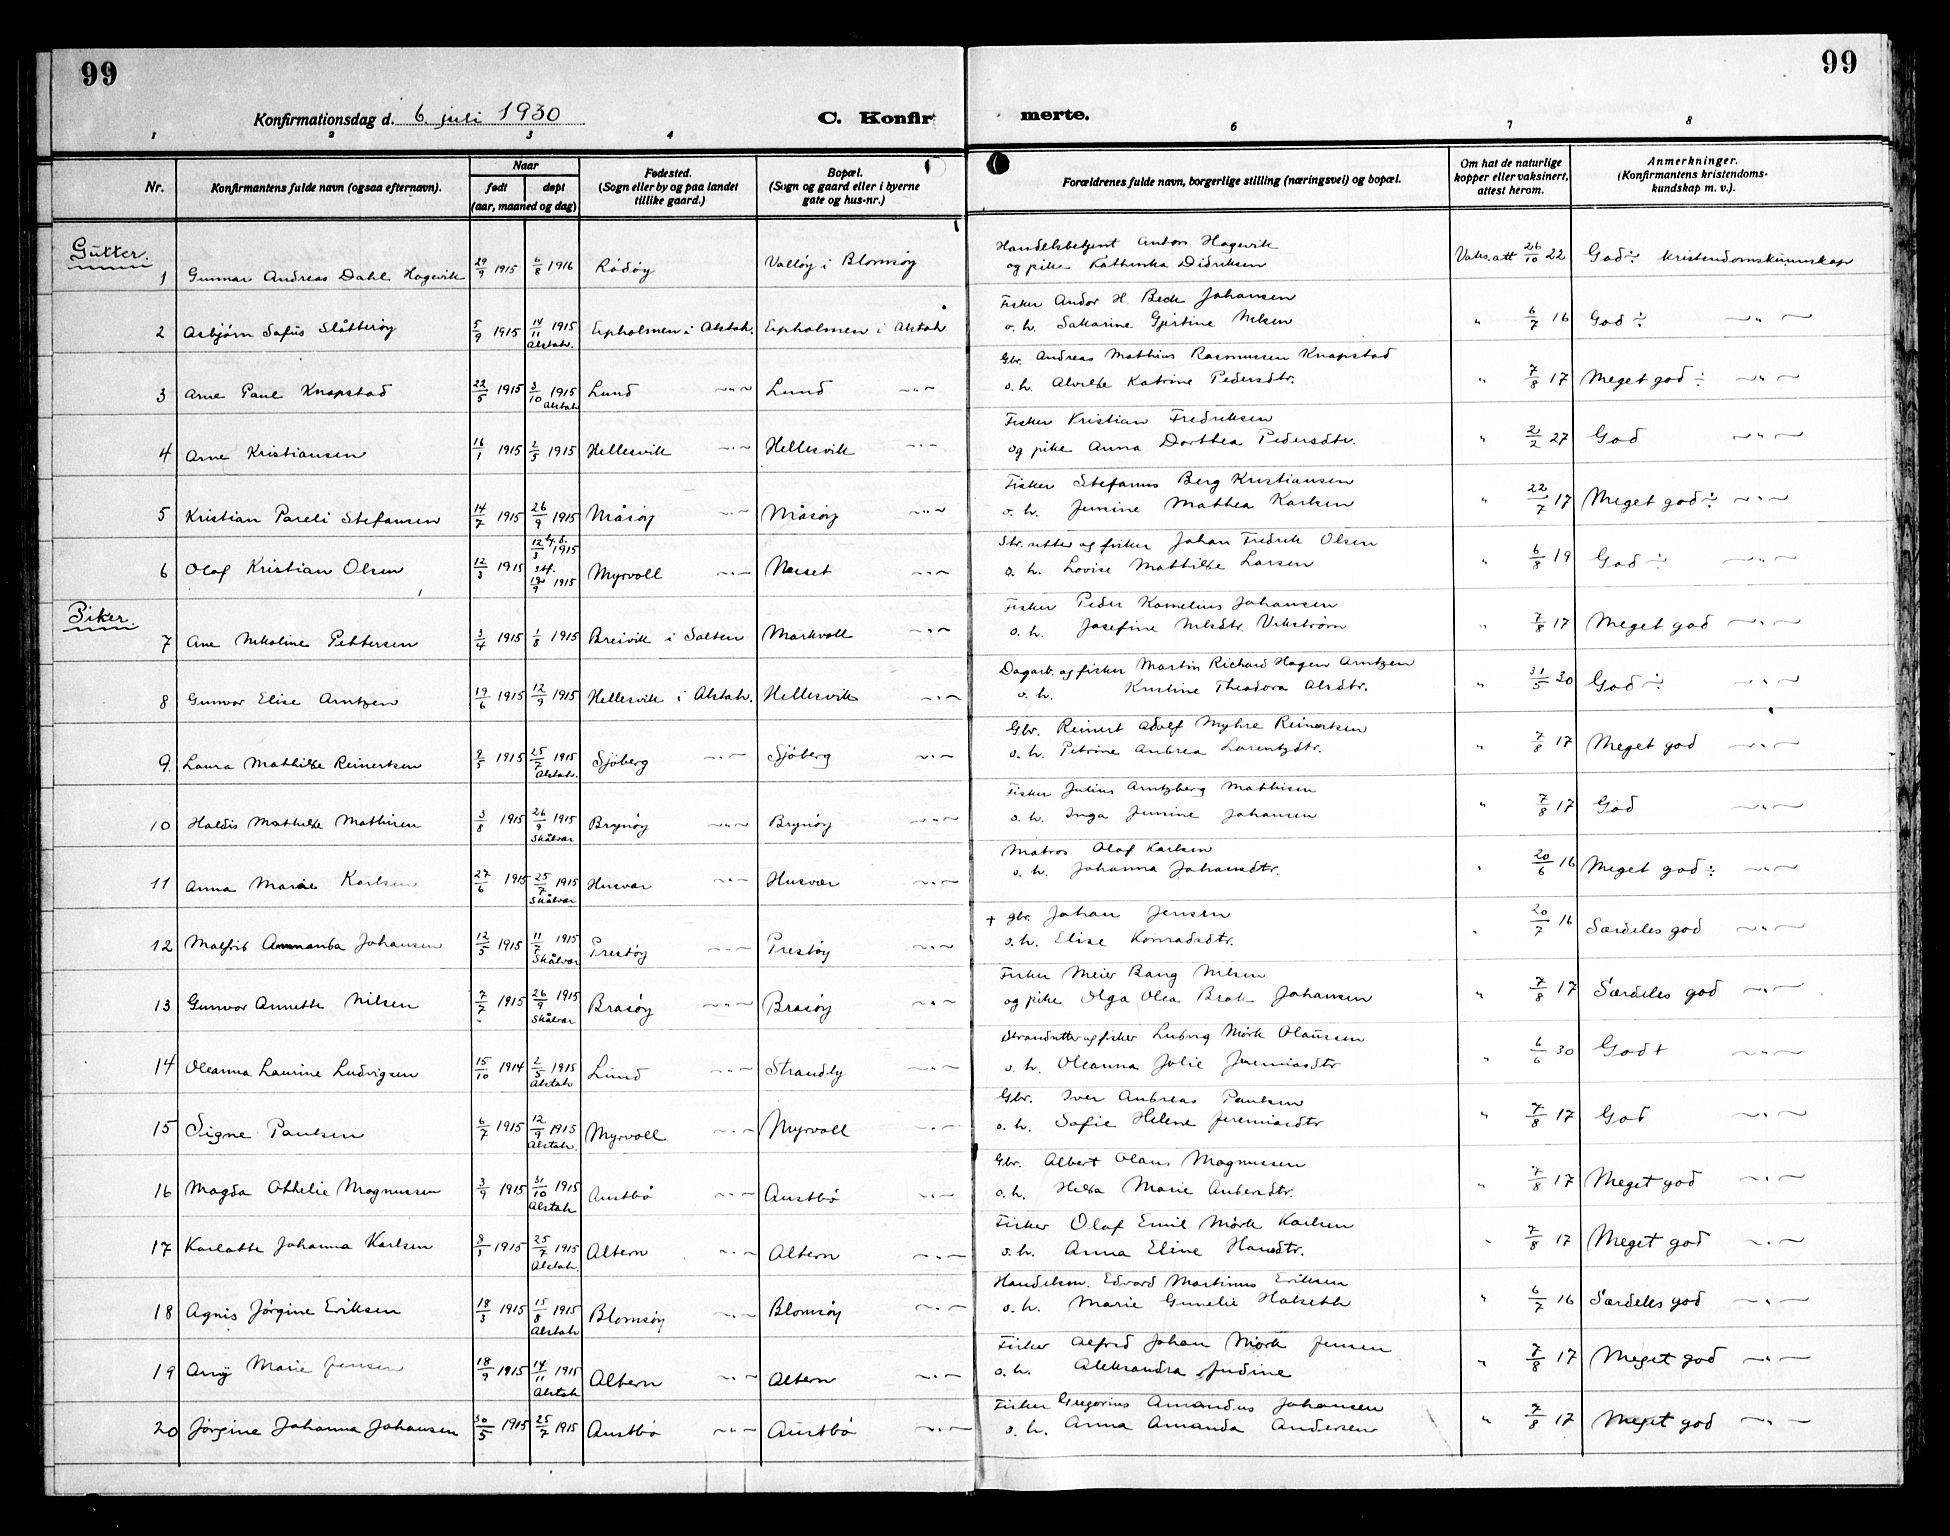 99
99
Konfirmationsdag d. 6. juli 1930
C. Konfir
merte.
1 2 3 4 6 7 8
Nr.
Konfirmantens fulde navn (ogsaa efternavn).
Naar
født
døpt
(aar, maaned og dag)
Fødested.
(Sogn eller by og paa landet
tillike gaard.)
Bopæl.
(Sogn og gaard eller i byerne
gate og hus-nr.)
Forældrenes fulde navn, borgerlige stilling (næringsvei) og bopæl.
Om hat de naturlige
kopper eller vaksinert,
attest herom.
Anmerkninger.
(Konfirmantens kristendoms-
kundskap m. v.).
Gutter.
Handelsbetjent Anton Hagevik
1 Gunnar Andreas Dahl Hagevik 29/9 1915 6/8 1916 Rødøy Valløy i Blomsøy og pike Kathinka Didriksen Vaks.att 26/10 22 God ÷ kristendomskunnskap
Fisker Andor H. Beck Johansen
2 Asbjørn Sofus Slåtterøy 5/9 1915 14/11 1915 Alstah. i Alstah. i Alstah o. h. Sakarine Gjertine Nilsen " 6/7 16 God ÷ ~"~
Gbr. Andreas Mathius Rasmussen Knapstad
3 Arne Paul Knapstad 22/5 1915 3/10 1915 Alstah Lund ~"~ Lund ~"~ o. h. Alvilde Katrine Pedersdtr. " 7/8 17 Meget god ÷ ~"~
Fisker Kristian Fredriksen
4 Arne Kristiansen 16/1 1915 2/5 1915 Hellesvik ~"~ Hellesvik ~"~ og pike Anna Dorthea Pedersdtr. " 2/2 27 God ~"~
Fisker Stefanus Berg Kristiansen
5 Kristian Pareli Stefansen 14/7 1915 26/9 1915 Måsøy ~"~ Måsøy ~"~ o. h. Jensine Mathea Karlsen " 22/7 17 Meget god ÷ ~"~
Str.sitter og fisker Johan Fredrik Olsen
6 Olaf Kristian Olsen 12/3 1915 12/3 1915 stf. 19/9 1915 Myrvoll ~"~ Neset ~"~ o. h. Lovise Mathilde Larsen " 6/8 19 God ÷ ~"~
Piker.
Fisker Peder Kornelius Johansen
7 Ane Nikoline Pettersen 3/4 1915 1/8 1915 Breivik i Salten Markvoll ~"~ o. h. Josefine Nilsdtr. Vikstrøm " 7/8 17 Meget god ~"~
Dagarb. og fisker Martin Richard Hagen Arntzen
8 Gunvor Elise Arntzen 19/6 1915 12/9 1915 Hellesvik i Alstah. Hellesvik ~"~ o. h. Kristine Theodora Alsdtr. " 31/5 30 God ÷ ~"~
Gbr. Reinert Adolf Myhre Reinertsen
9. Laura Mathilde Reinertsen 8/5 1915 25/7 1915 Alstah. Sjøberg ~"~ Sjøberg ~"~ o. h. Petrine Andrea Lorentzdtr. " 7/8 17 Meget god ~"~
Fisker Julius Arntzberg Mathisen
10 Haldis Mathilde Mathisen 3/8 1915 26/9 1915 Skålvær Brynøy ~"~ Brynøy ~"~ o. h. Inga Jensine Johansen " 7/8 17 God ~"~
Matros Olaf Karlsen
11 Anna Marie Karlsen 27/6 1915 25/7 1915 Skålvær Husvær ~"~ Husvær ~"~ o. h. Johanna Johansdtr. " 20/6 16 Meget god ÷ ~"~
+ gbr. Johan Jensen
12 Malfrid Ammanda Johansen 12/5 1915 11/7 1915 Skålvær Prestøy ~"~ Prestøy ~"~ o. h. Elise Konradsdtr. " 20/7 16 Særdeles god ~"~
Fisker Meier Bang Nilsen
13 Gunvor Annette Nilsen 7/7 1915 26/9 1915 Skålvær Brasøy ~"~ Brasøy ~"~ og pike Olga Olea Brok Johansen " 7/8 17 Særdeles god ~"~
Strandsitter og fisker Ludvig Mørk Olaussen
14 Oleanna Laurine Ludvigsen 15/10 1914 2/5 1915 Alstah Lund ~"~ Strandby ~"~ o. h. Oleanna Jolie Jeremiasdtr " 6/6 30 God + ~"~
Gbr. Iver Andreas Paulsen
15 Signe Paulsen 6/7 1915 12/9 1915 Alstah. Myrvoll ~"~ Myrvoll ~"~ o. h. Sofie Helene Jeremiasdtr " 7/8 17 God ~"~
Gbr. Albert Olaus Magnussen
16 Magda Othelie Magnussen 3/9 1915 31/10 1915 Alstah Austbø ~"~ Austbø ~"~ o. h. Hilda Marie Andersdtr. " 7/8 17 Meget god ~"~
Fisker Olaf Emil Mørk Karlsen
17 Karlotte Johanna Karlsen 8/3 1915 25/7 1915 Alstah. Altern ~"~ Altern ~"~ o. h. Anna Eline Hansdtr. " 7/8 17 Meget god ~"~
Handelsm. Edvard Martinus Eriksen
18 Agnis Jørgine Eriksen 18/3 1915 15/8 1915 Alstah Blomsøy ~"~ Blomsøy ~"~ o. h. Marie Gunelie Halseth " 6/7 16 Særdeles god ~"~
Fisker Alfred Johan Mørk Jensen
19 Any Marie Jensen 18/9 1915 14/11 1915 Alstah Altern ~"~ Altern ~"~ o. h. Aleksandra Judine " 7/8 17 Meget god ~"~
Fisker Gregorius Amandus Johansen
20 Jørgine Johanna Johansen 30/5 1915 25/7 1915 Austbø ~"~ Austbø ~"~ o. h. Anna Amanda Andersen " 7/8 17 Meget god ~"~